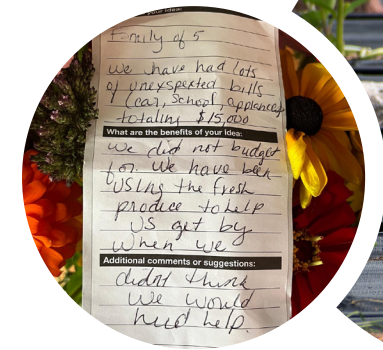 your idea:
Family of 5
we have had lots
of unexspexted bills
(car, School, appliances)
totaling $15,000
What are the benefits of your idea:
We did not budget
for. We have been
using the fresh
produce to help
us get by
when we
Additional comments or suggestions:
didn't think
we would
need help.